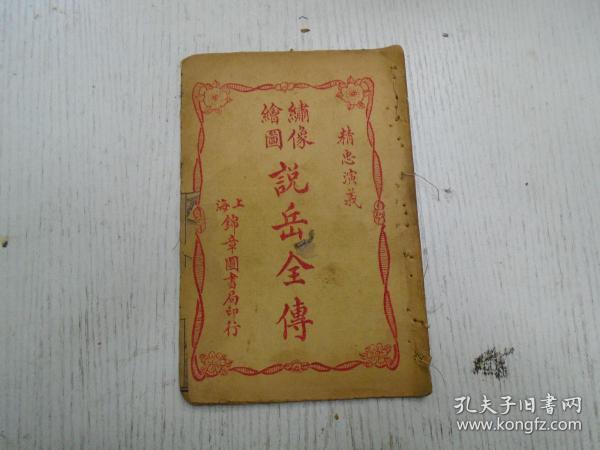 精忠演義
繡像
繪圖
說岳全傳
上海
錦章圖書局印行
孔夫子旧书网
www.kongfz.com